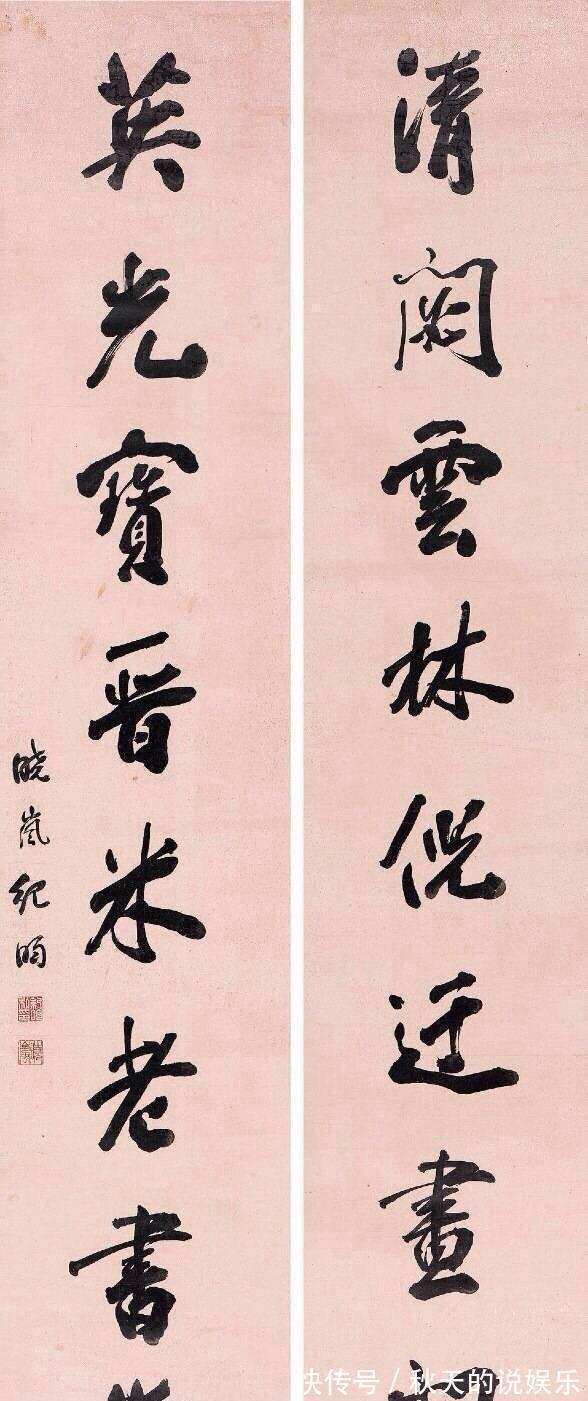 清閟雲林倪迂畫
英光寶晉米老書
曉嵐紀昀
快传号 / 秋天的说娱乐